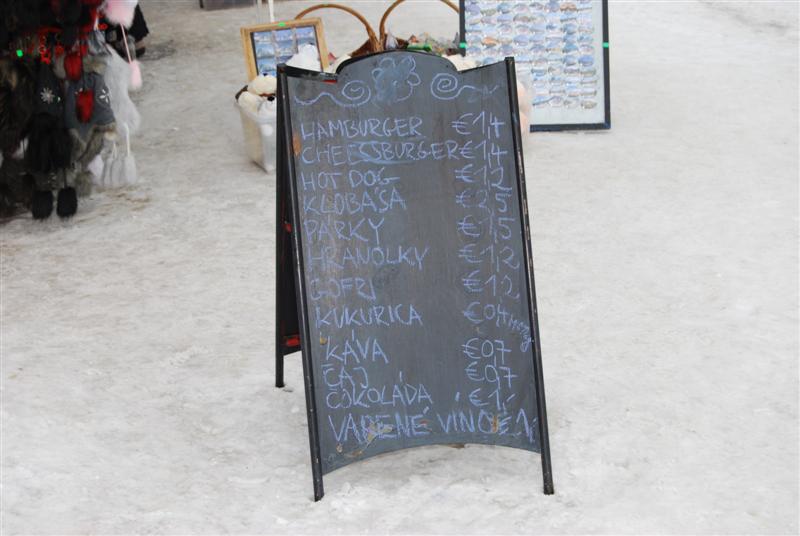 HAMBURGER €1,4
CHEESSBURGER €1,4
HOT DOG €1,2
KLOBÁSA €2,5
PÁRKY €1,5
HRANOLKY €1,2
GOFRI €1,2
KUKURICA €0,4
KÁVA €0,7
ČAJ €0,7
ČOKOLÁDA €1,-
VARENÉ VÍNO €1,-